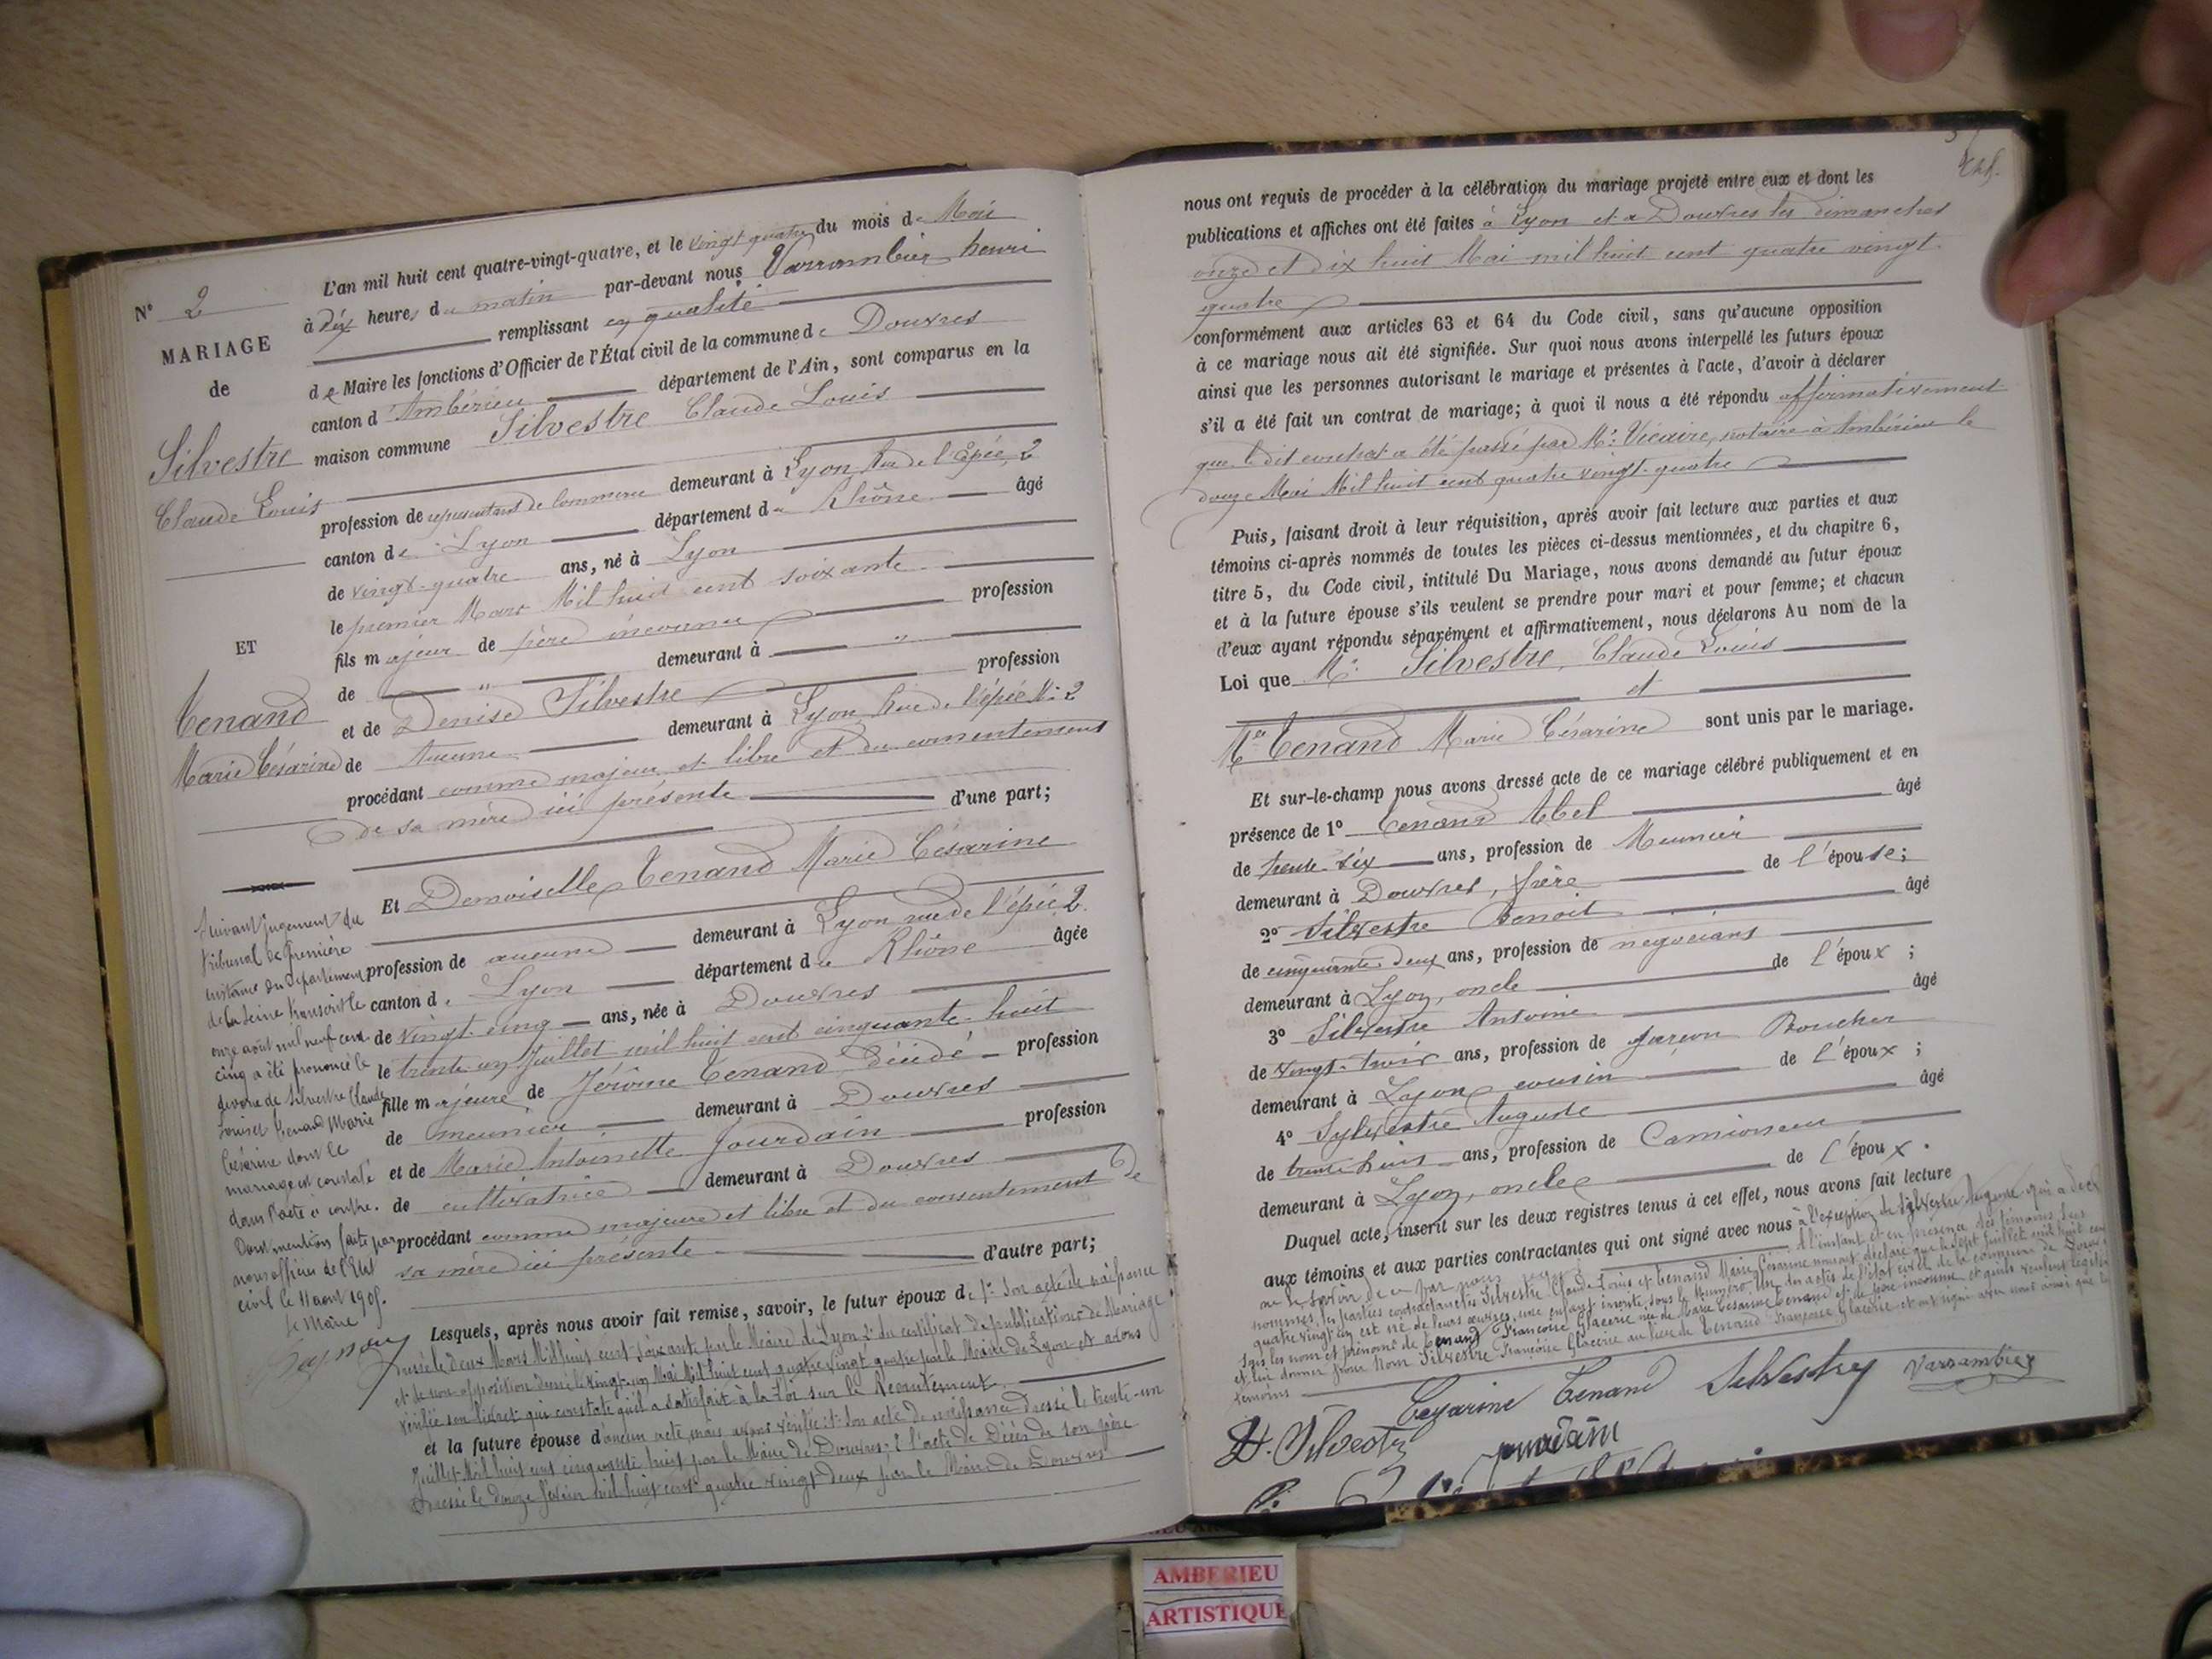 N° 2
MARIAGE
de
Silvestre
Claude Louis
ET
Tenand
Marie Césarine
L'an mil huit cent quatre-vingt-quatre, et le vingt quatre du mois de Mai
à dix heures du matin par-devant nous Varrambier henri
remplissant en qualité
de Maire les fonctions d'Officier de l'État civil de la commune de Douvres
canton d'Ambérieu département de l'Ain, sont comparus en la
maison commune Silvestre Claude Louis
profession de représentant de commerce demeurant à Lyon Rue de l'Epée, 2
canton de Lyon département du Rhône âgé
de vingt-quatre ans, né à Lyon
le premier Mars Mil huit cent soixante
fils majeur de père inconnu profession
de " demeurant à "
et de Denise Silvestre profession
de Aucune demeurant à Lyon Rue de l'épée N° 2
procédant comme majeur et libre et du consentement
de sa mère ici présente d'une part;
Et Demoiselle Tenand Marie Césarine
profession de aucune demeurant à Lyon rue de l'épée 2.
canton de Lyon département du Rhône âgée
de vingt-cinq ans, née à Douvres
le trente un Juillet mil huit cent cinquante-huit
fille majeure de Jérôme Tenand, décédé profession
de meunier demeurant à Douvres
et de Marie Antoinette Jourdain profession
de cultivatrice demeurant à Douvres
procédant comme majeure et libre et du consentement de
sa mère ici présente d'autre part;
Suivant jugement du
tribunal de première
instance du département
de la Seine transcrit le
onze août mil neuf cent
cinq a été prononcé le
divorce de Silvestre Claude
Louis et Tenand Marie
Césarine dont le
mariage est constaté
dans l'acte ci contre.
Dont mention faite par
nous officier de l'Etat
civil le 11 août 1905.
Le Maire
Lesquels, après nous avoir fait remise, savoir, le futur époux de 1° Son acte de naissance
dressé le deux Mars Mil huit cent soixante par le Maire de Lyon 2° du certificat de publications de Mariage
et de non-opposition dressé le vingt-un Mai Mil huit cent quatre vingt quatre par le Maire de Lyon et avons
vérifié son livret qui constate qu'il a satisfait à la Loi sur le Recrutement
et la future épouse d'aucun acte, mais avons vérifié: 1° Son acte de naissance dressé le trente-un
Juillet Mil huit cent cinquante huit par le Maire de Douvres, 2° l'acte de Décès de son père
dressé le douze février mil huit cent quatre vingt-deux par le Maire de Douvres
nous ont requis de procéder à la célébration du mariage projeté entre eux et dont les
publications et affiches ont été faites à Lyon et à Douvres les dimanches
onze et dix huit Mai mil huit cent quatre vingt
quatre
conformément aux articles 63 et 64 du Code civil, sans qu'aucune opposition
à ce mariage nous ait été signifiée. Sur quoi nous avons interpellé les futurs époux
ainsi que les personnes autorisant le mariage et présentes à l'acte, d'avoir à déclarer
s'il a été fait un contrat de mariage; à quoi il nous a été répondu affirmativement
que le dit contrat a été passé par Me Vicaire, notaire à Ambérieu le
douze Mai Mil huit cent quatre vingt-quatre
Puis, faisant droit à leur réquisition, après avoir fait lecture aux parties et aux
témoins ci-après nommés de toutes les pièces ci-dessus mentionnées, et du chapitre 6,
titre 5, du Code civil, intitulé Du Mariage, nous avons demandé au futur époux
et à la future épouse s'ils veulent se prendre pour mari et pour femme; et chacun
d'eux ayant répondu séparément et affirmativement, nous déclarons Au nom de la
Loi que Mr Silvestre, Claude Louis
et
Melle Tenand Marie Césarine sont unis par le mariage.
Et sur-le-champ nous avons dressé acte de ce mariage célébré publiquement et en
présence de 1° Tenand Abel âgé
de trente-six ans, profession de Meunier
demeurant à Douvres, frère de l'épouse;
2° Silvestre Benoit âgé
de cinquante-deux ans, profession de négociant
demeurant à Lyon, oncle de l'époux;
3° Silvestre Antoine âgé
de vingt-trois ans, profession de garçon Boucher
demeurant à Lyon cousin de l'époux;
4° Sylvestre Auguste âgé
de trente huit ans, profession de Camionneur
demeurant à Lyon, oncle de l'époux.
Duquel acte, inscrit sur les deux registres tenus à cet effet, nous avons fait lecture
aux témoins et aux parties contractantes qui ont signé avec nous à l'exception de Sylvestre Auguste qui a
ne le savoir de ce par nous requis. A l'instant et en présence des témoins sus
nommés, les parties contractantes Silvestre Claude Louis et Tenand Marie Césarine nous ont déclaré que le sept Juillet mil huit cent
quatre vingt un est né de leurs œuvres, une enfant inscrite sous le Numéro Un des actes de l'état civil de la commune de
sous les nom et prénoms de Tenand Françoise Glacerie née de Marie Césarine Tenand et de père inconnu et qu'ils veulent
et lui donner pour nom Silvestre Françoise Glacerie au lieu de Tenand Françoise Glacerie et ont signé avec nous ainsi que les
témoins
Cezarine Tenand Silvestre Varrambier
D. Silvestre
AMBERIEU
ARTISTIQUE